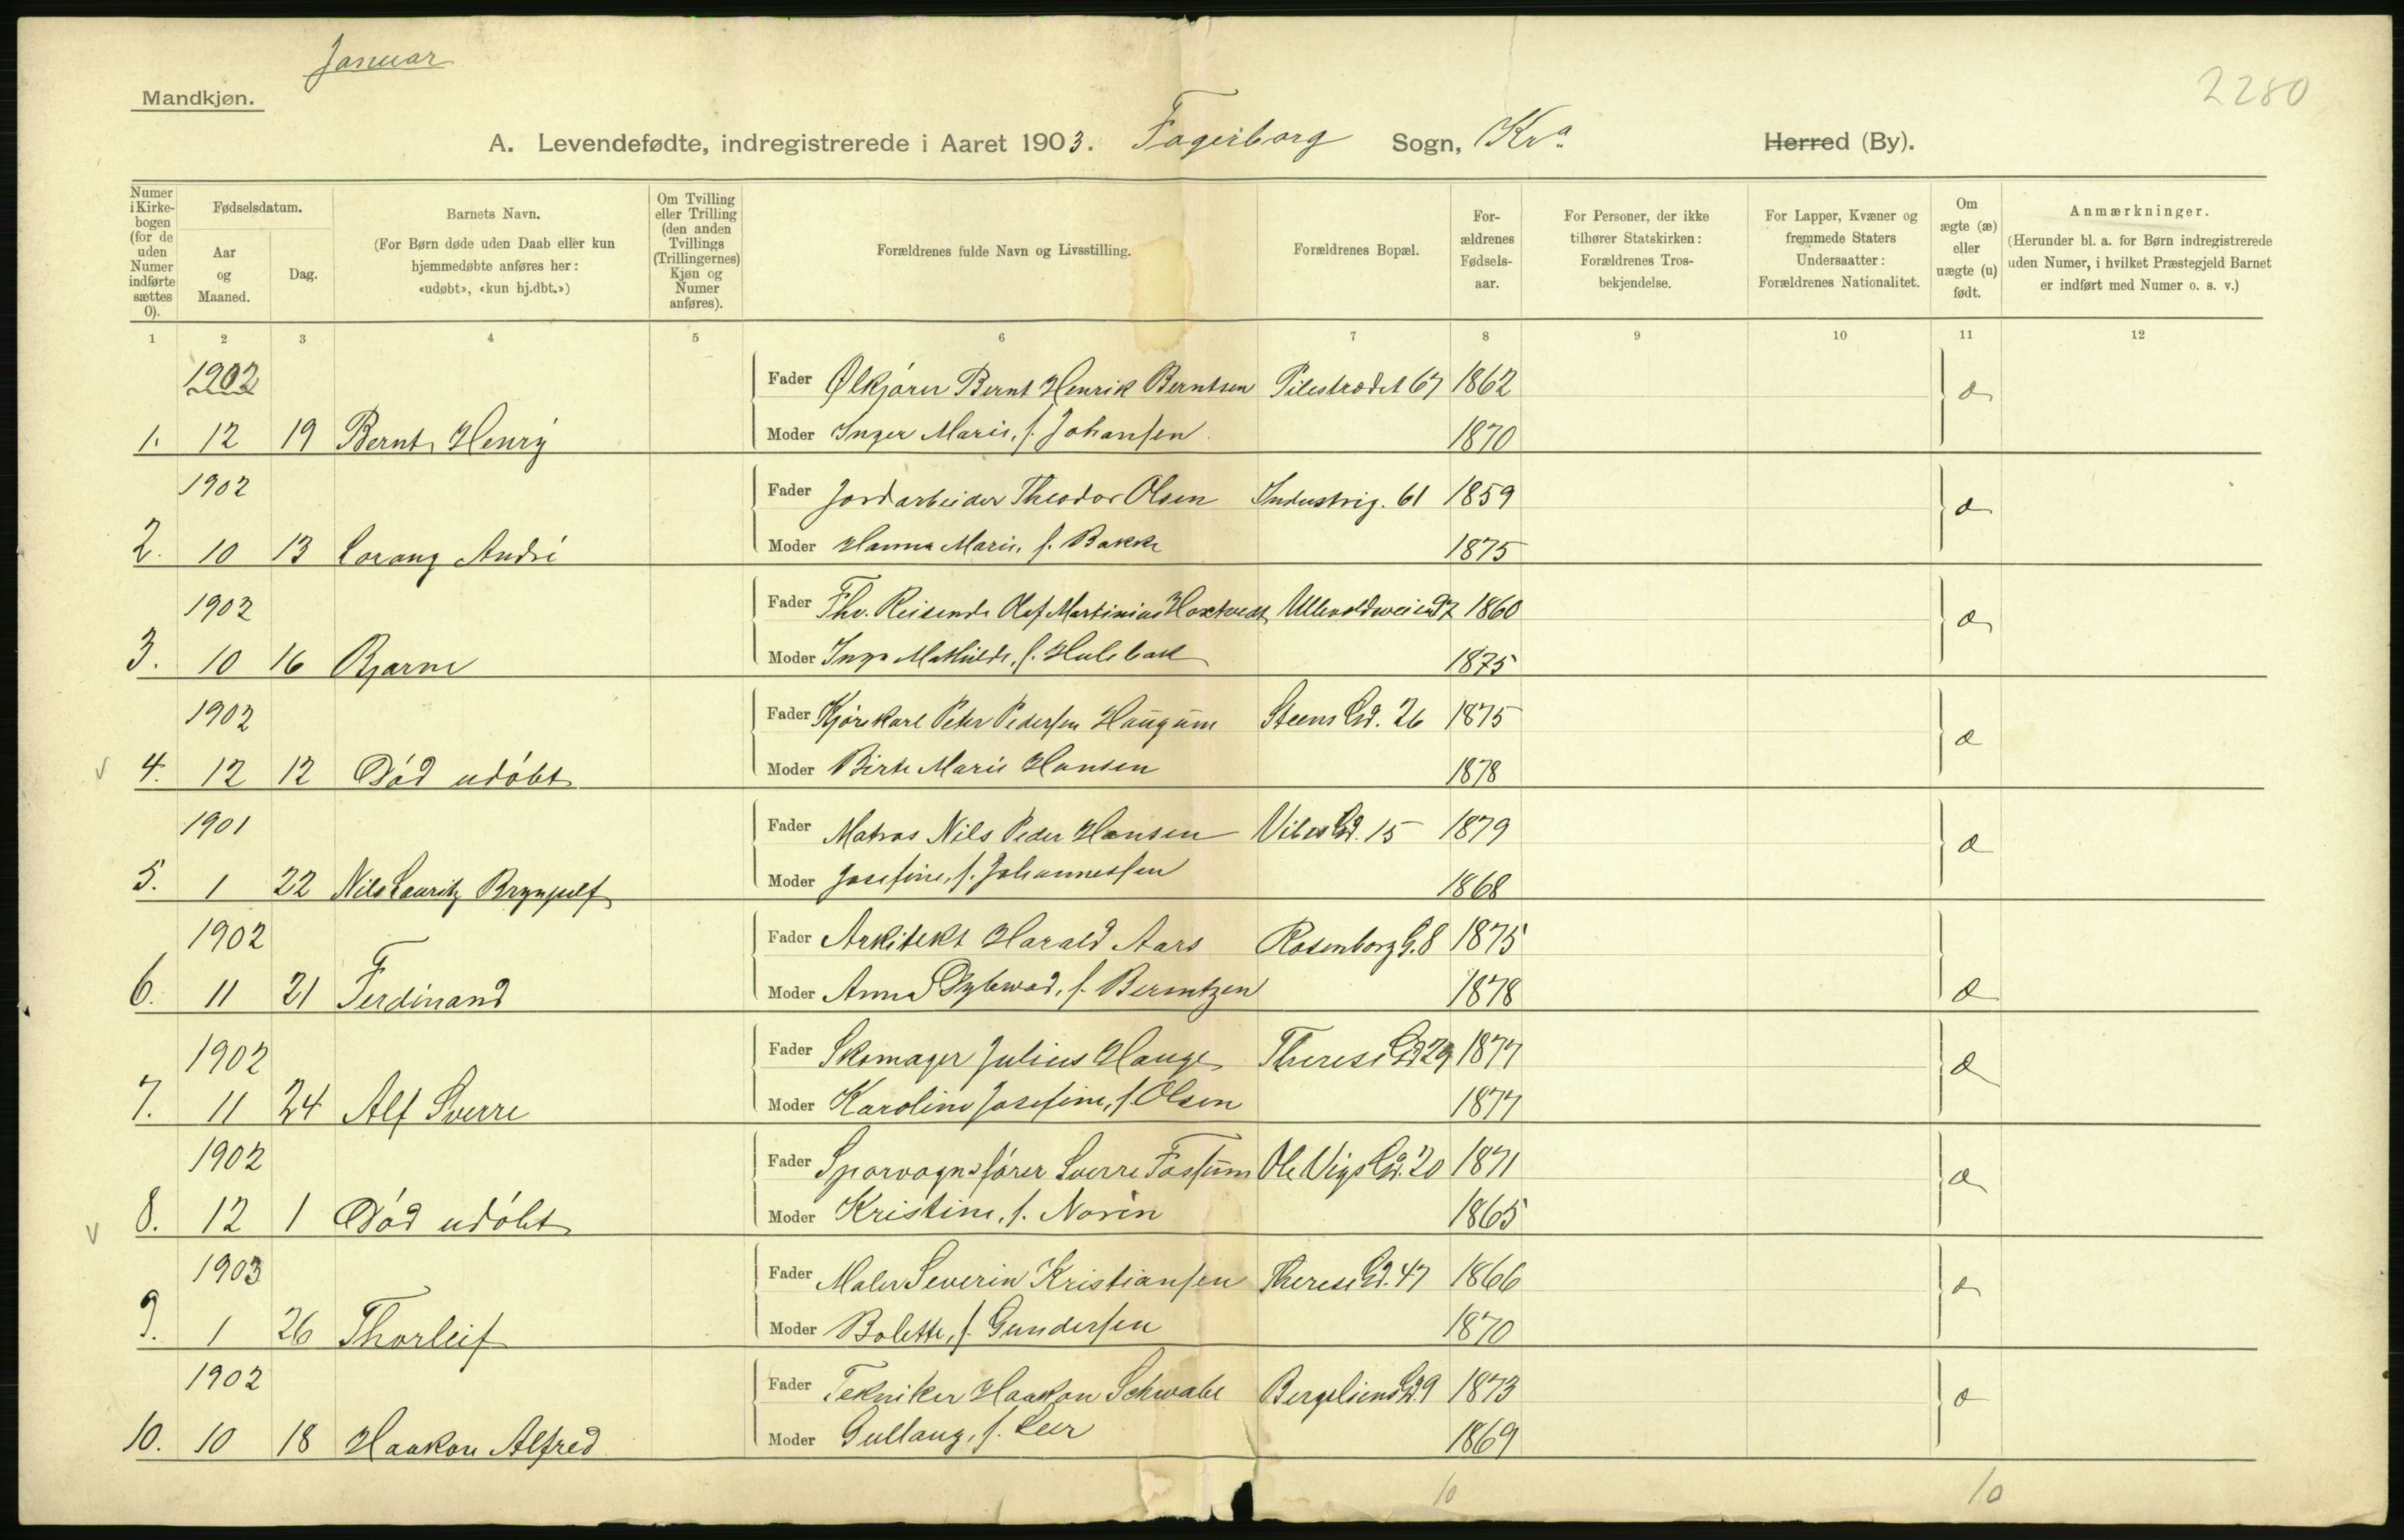 Januar
2280
Mandkjøn.
A. Levendefødte, indregistrerede i Aaret 1903. Fagerborg Sogn, Kra. Herred (By).
Numer i Kirkebogen (for de uden Numer indførte sættes 0).
Fødselsdatum.
Aar og Maaned.
Dag.
Barnets Navn.
(For Børn døde uden Daab eller kun hjemmedøbte anføres her: «udøbt», «kun hj.dbt.»)
Om Tvilling eller Trilling (den anden Tvillings (Trillingernes) Kjøn og Numer anføres).
Forældrenes fulde Navn og Livsstilling.
Forældrenes Bopæl.
For-ældrenes Fødsels-aar.
For Personer, der ikke tilhører Statskirken: Forældrenes Tros-bekjendelse.
For Lapper, Kvæner og fremmede Staters Undersaatter: Forældrenes Nationalitet.
Om ægte (æ) eller uægte (u) født.
Anmærkninger.
(Herunder bl. a. for Børn indregistrerede uden Numer, i hvilket Præstegjeld Barnet er indført med Numer o. s. v.)
1 2 3 4 5 6 7 8 9 10 11 12
1902 Fader Ølkjører Bernt Henrik Berntsen Pilestrædet 67 1862 æ
1. 12 19 Bernt Henry Moder Inger Marie, f. Johansen 1870
1902 Fader Jordarbeider Theodor Olsen Industrig. 61 1859 æ
2. 10 13 Lorang André Moder Hanna Marie, f. Bakke 1875
1902 Fader Fhv. Reisende Olaf Martinius 1860 æ
3. 10 16 Bjarne Moder Inga Mathilde, f. Hulebak 1875
1902 Fader Kjørekarl Peter Pedersen Haugum Steens Gd. 26 1875 æ
4. 12 12 Død udøbt Moder Birte Marie Hansen 1878
1901 Fader Matros Nils Peder Hansen Vibes Gd. 15 1879 æ
5. 1 22 Nils Lauritz Brynjulf Moder Josefine, f. Johannessen 1868
1902 Fader Arkitekt Harald Aars Rosenborg G. 8 1875
6. 11 21 Ferdinand Moder Anna Dybwad, f. Berntzen 1878 æ
1902 Fader Skomager Julius Hauge Therese Gd 29 1877 æ
7. 11 24 Alf Sverre Moder Karoline Josefine, f. Olsen 1877
1902 Fader Sporvognsfører Sverre Fossum Ole Vigs Gd. 20 1871 æ
8. 12 1 Død udøbt Moder Kristine, f. Norén 1865
1903 Fader Maler Severin Kristiansen Therese Gd. 47 1866 æ
9. 1 26 Thorleif Moder Bolette, f. Gundersen 1870
1902 Fader Tekniker Haakon Schwabe Bergsliens Gd. 9 1873 æ
10. 10 18 Haakon Alfred Moder Gullaug, f. Leer 1869
10 10